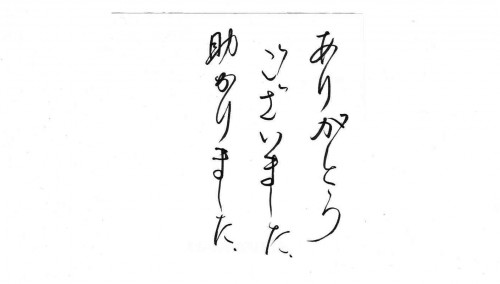 ありがとう
ございました.
助かりました.